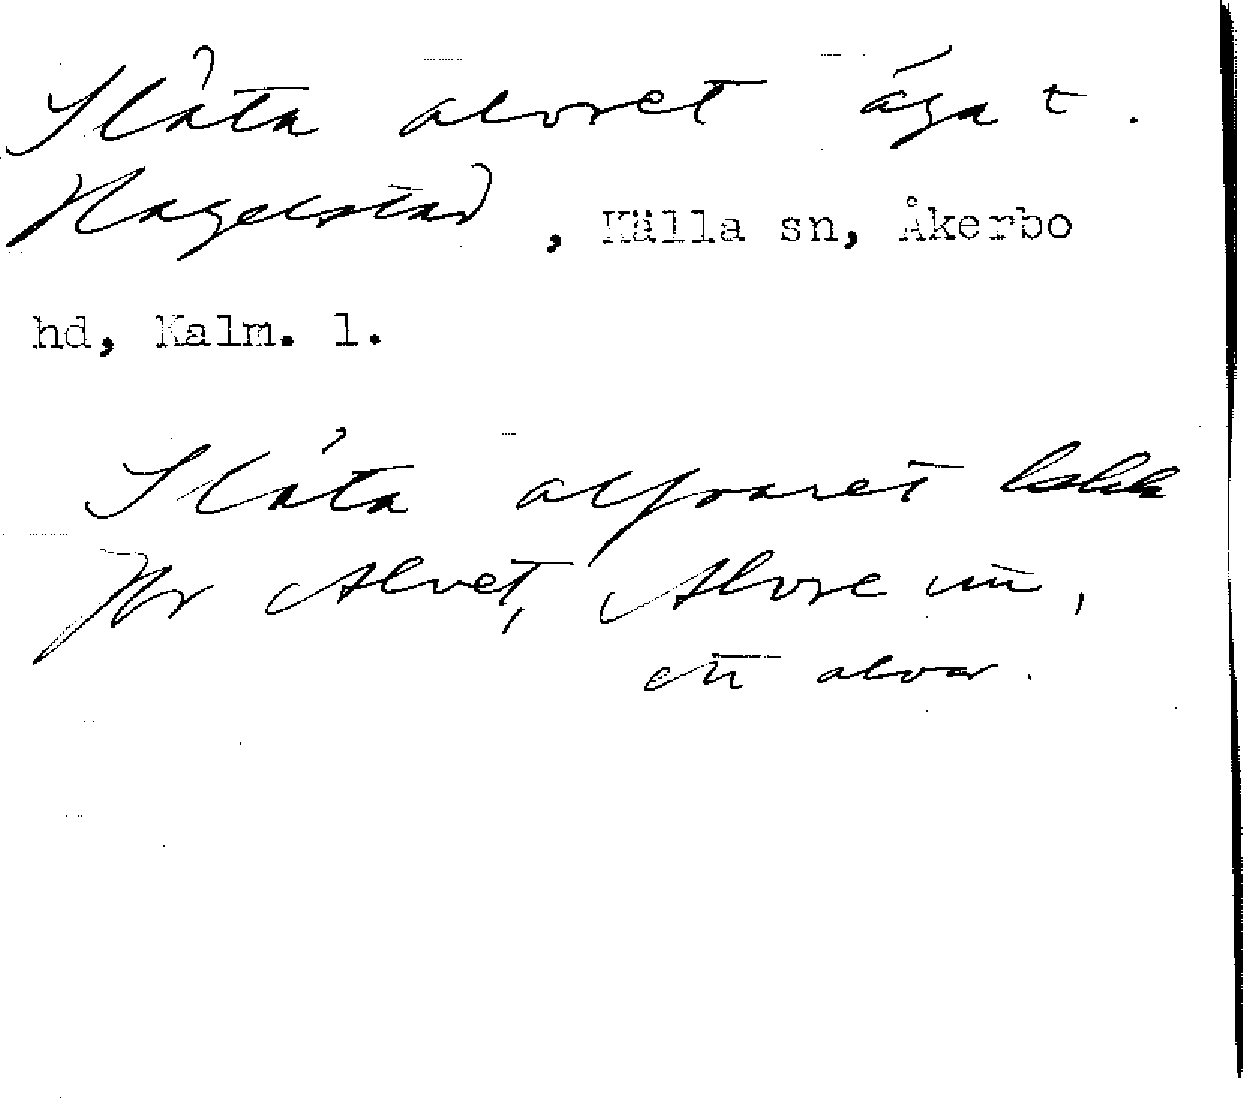 Slåta alvret äga t.
Hagelstad, Källa sn, Åkerbo
hd, Kalm. l.
Slåta alfvaret
Jfr Alvet, Alvre
ett alvar.